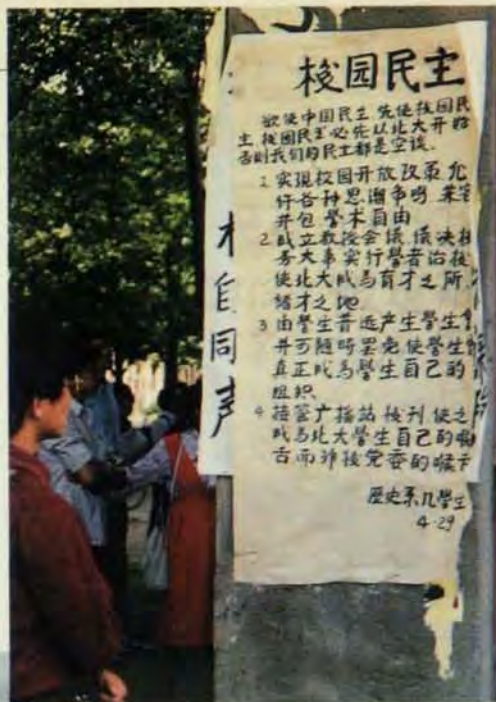 校园民主
欲使中国民主 先使校园民
主 校园民主必先以北大开始
否则我们的民主都是空谈.
1. 实现校园开放政策 允
许各种思潮争鸣 兼容
并包 學术自由
2. 成立教授会議, 議决校
务大事实行學者治校
使北大成为育才之所,
储才之地.
3 由學生普选产生學生會
并可随時罢免使學生會
真正成为學生自己的
组织.
4. 接管广播站 校刊 使之
成为北大學生自己的喉
舌而非校党委的喉舌
歷史系几學生
4·29
自
同
声